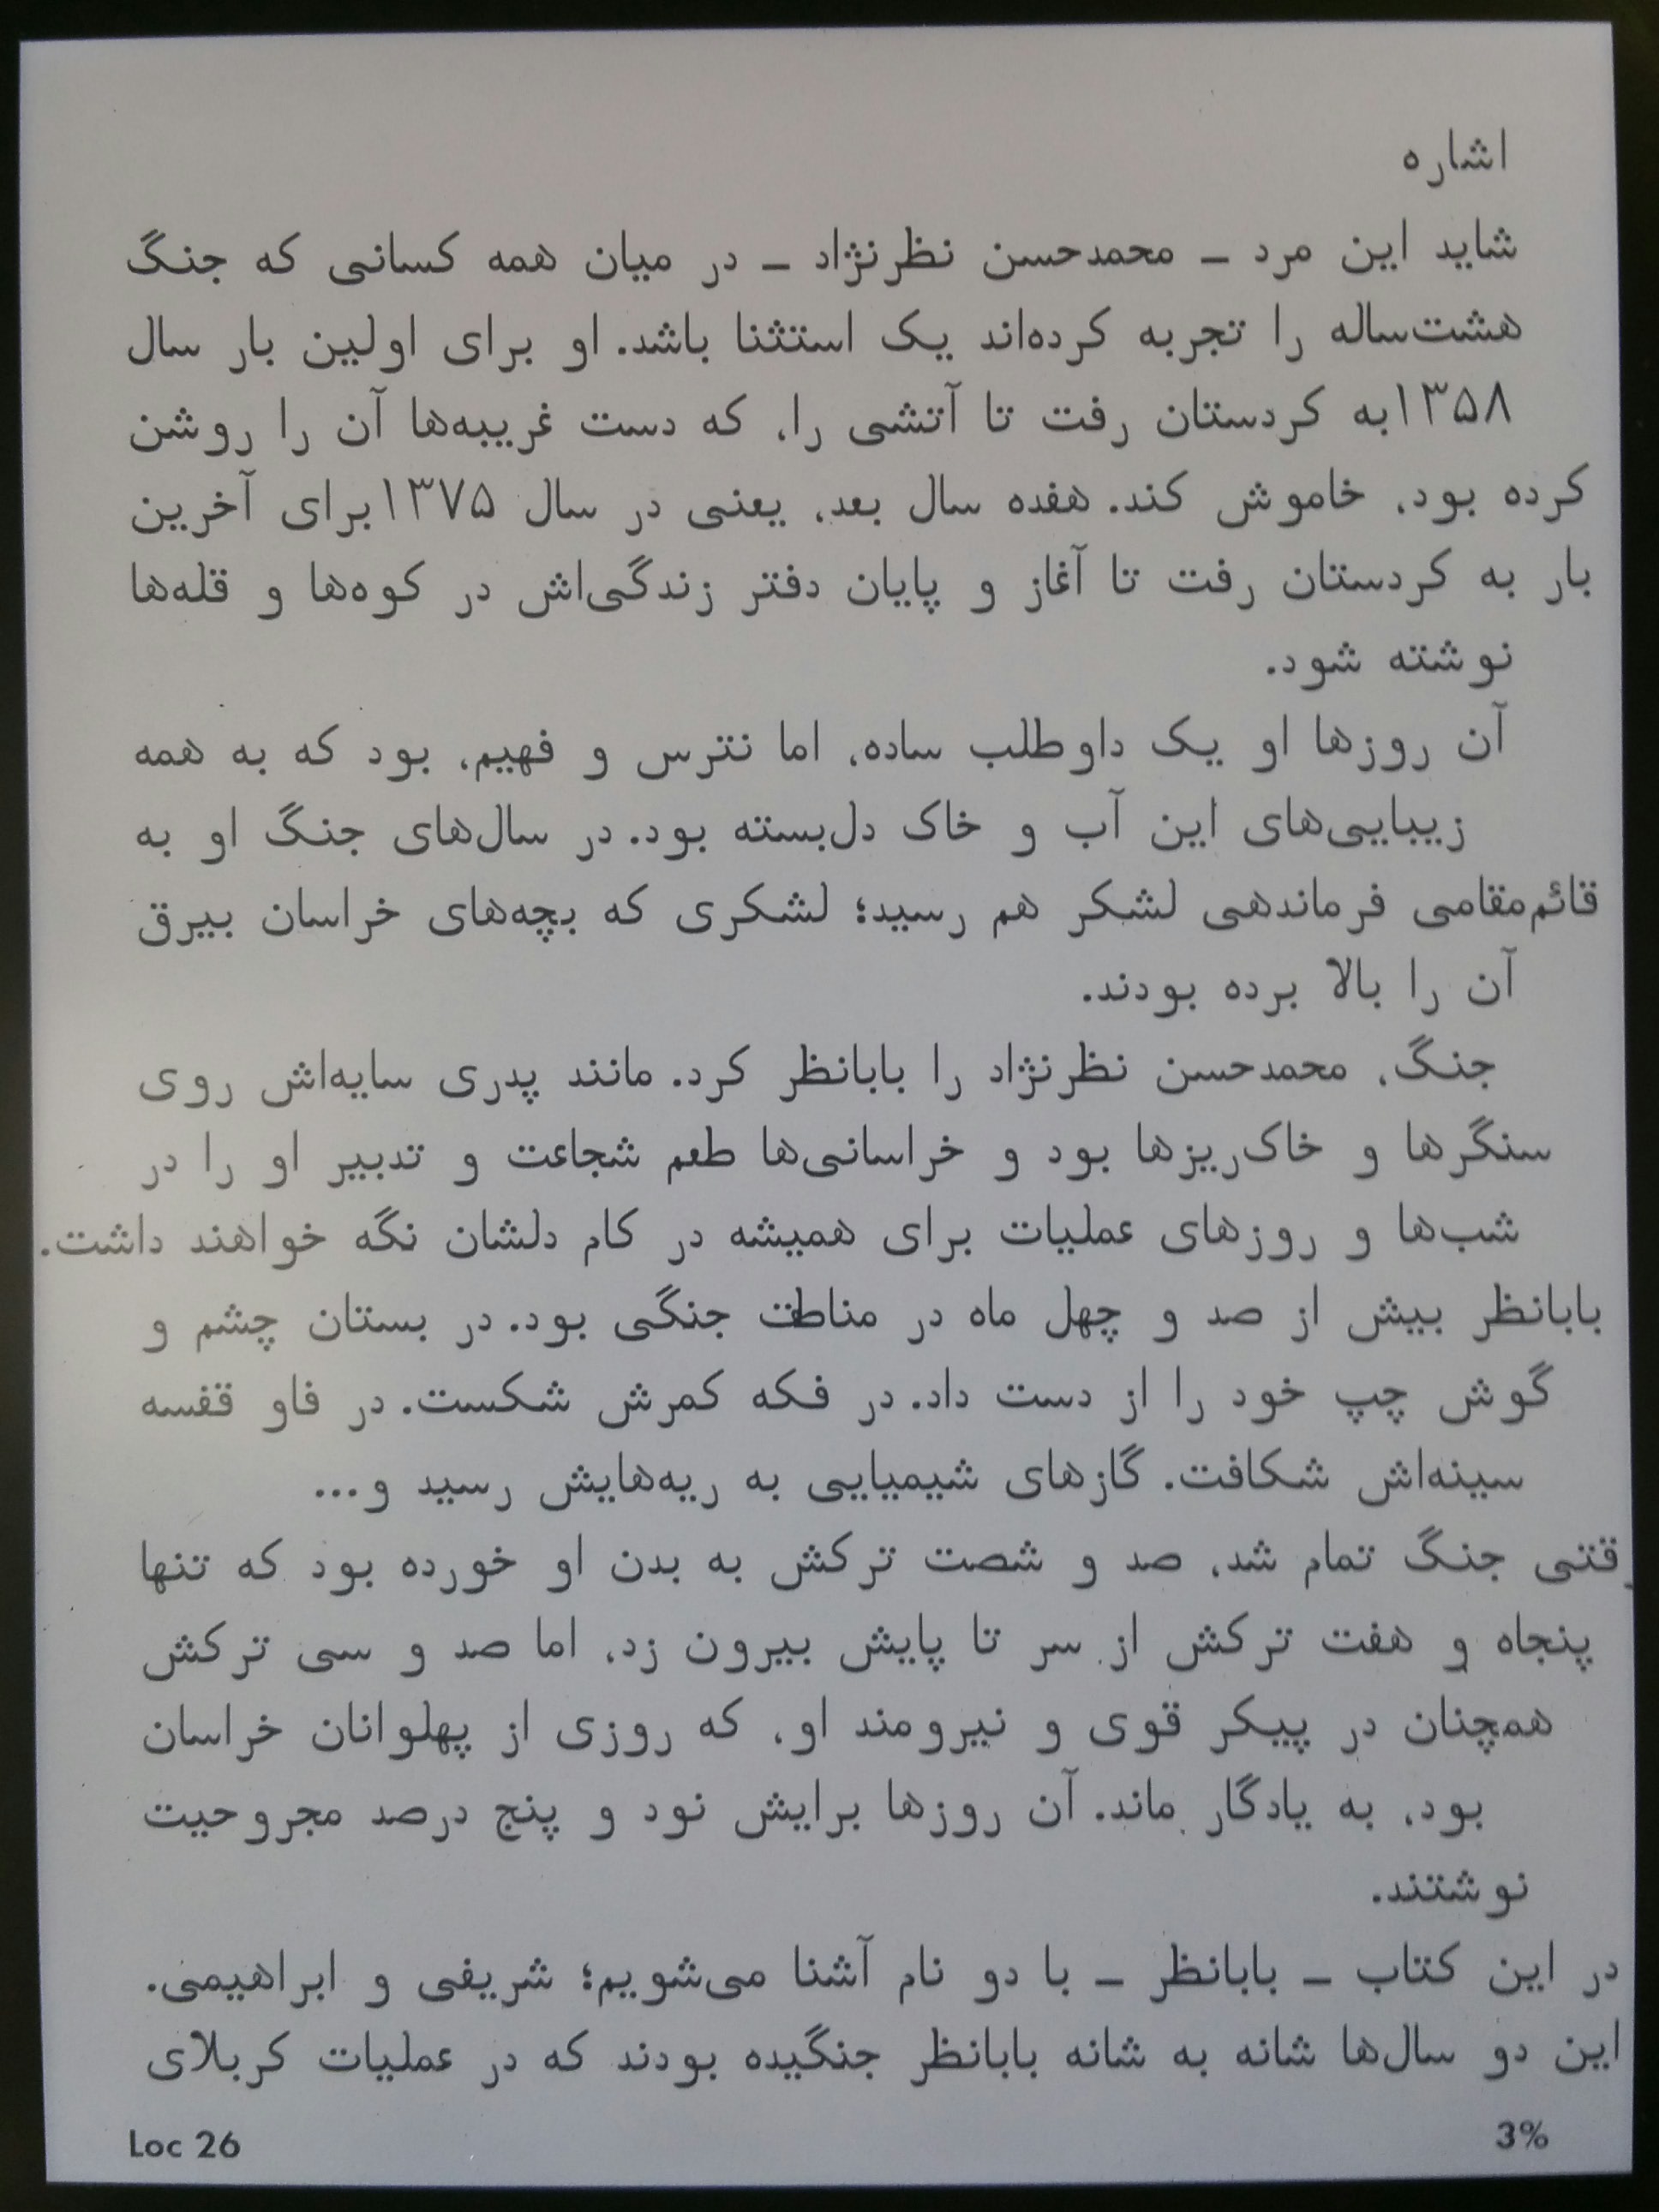 اشاره
شاید این مرد ـ محمدحسن نظرنژاد ـ در میان همه کسانی که جنگ
هشت‌ساله را تجربه کرده‌اند یک استثنا باشد. او برای اولین بار سال
۱۳۵۸به کردستان رفت تا آتشی را، که دست غریبه‌ها آن را روشن
کرده بود، خاموش کند. هفده سال بعد، یعنی در سال ۱۳۷۵برای آخرین
بار به کردستان رفت تا آغاز و پایان دفتر زندگی‌اش در کوه‌ها و قله‌ها
نوشته شود.
آن روزها او یک داوطلب ساده، اما نترس و فهیم، بود که به همه
زیبایی‌های این آب و خاک دل‌بسته بود. در سال‌های جنگ او به
قائم‌مقامی فرماندهی لشکر هم رسید؛ لشکری که بچه‌های خراسان بیرق
آن را بالا برده بودند.
جنگ، محمدحسن نظرنژاد را بابانظر کرد. مانند پدری سایه‌اش روی
سنگرها و خاک‌ریزها بود و خراسانی‌ها طعم شجاعت و تدبیر او را در
شب‌ها و روزهای عملیات برای همیشه در کام دلشان نگه خواهند داشت.
بابانظر بیش از صد و چهل ماه در مناطق جنگی بود. در بستان چشم و
گوش چپ خود را از دست داد. در فکه کمرش شکست. در فاو قفسه
سینه‌اش شکافت. گازهای شیمیایی به ریه‌هایش رسید و...
وقتی جنگ تمام شد، صد و شصت ترکش به بدن او خورده بود که تنها
پنجاه و هفت ترکش از سر تا پایش بیرون زد، اما صد و سی ترکش
همچنان در پیکر قوی و نیرومند او، که روزی از پهلوانان خراسان
بود، به یادگار ماند. آن روزها برایش نود و پنج درصد مجروحیت
نوشتند.
در این کتاب ـ بابانظر ـ با دو نام آشنا می‌شویم؛ شریفی و ابراهیمی.
این دو سال‌ها شانه به شانه بابانظر جنگیده بودند که در عملیات کربلای
Loc 26
3%